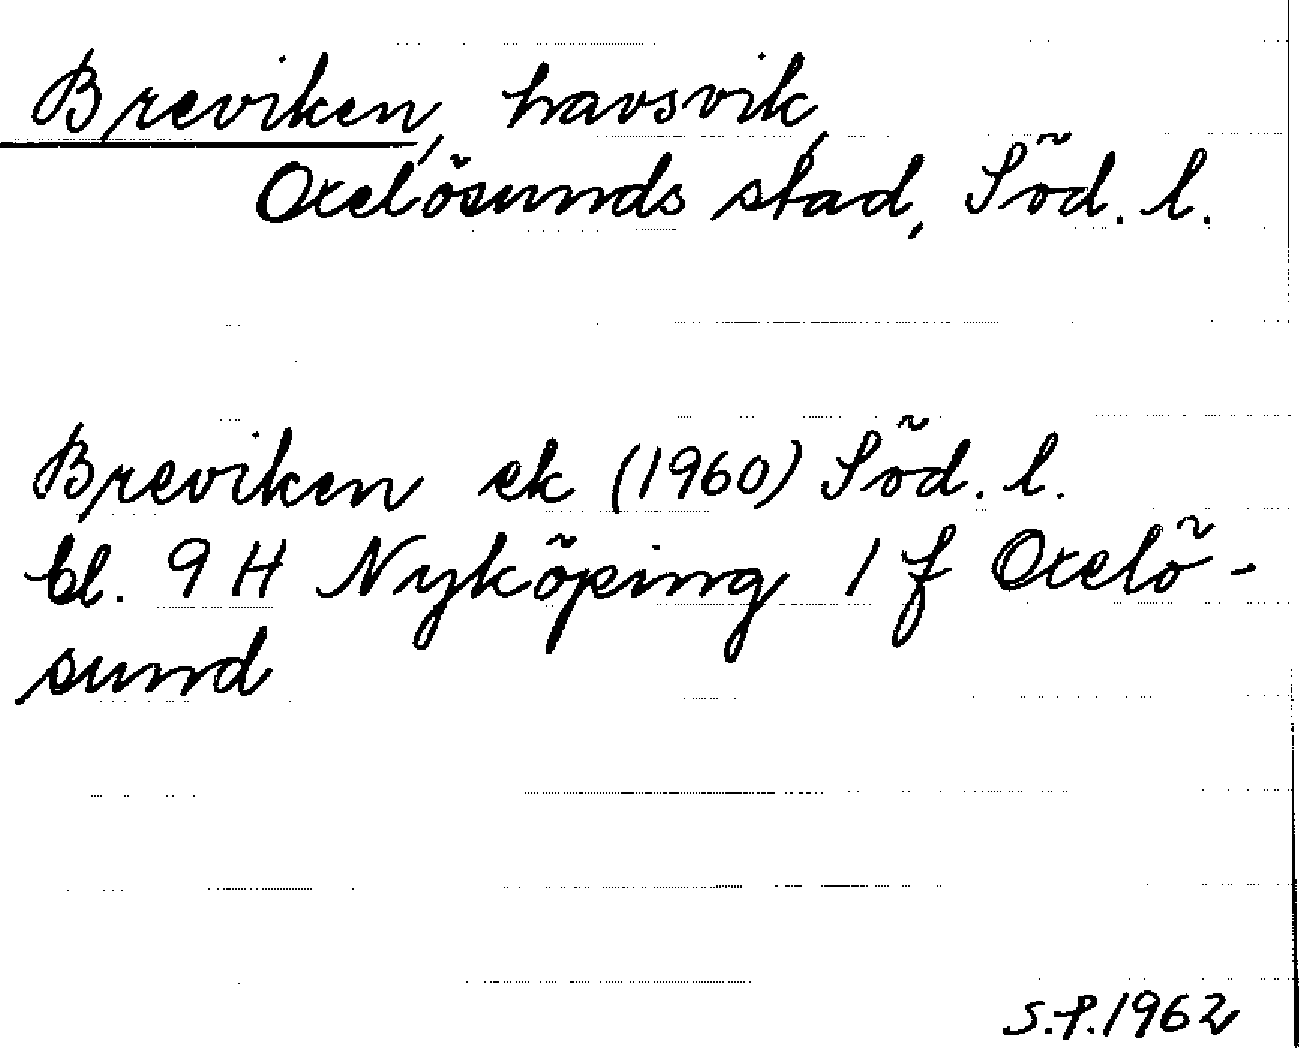 Breviken, havsvik,
Oxelösunds stad, Söd. l.
Breviken ek (1960) Söd. l.
bl. 9 H Nyköping 1 f Oxelö-
sund
S.P.1962